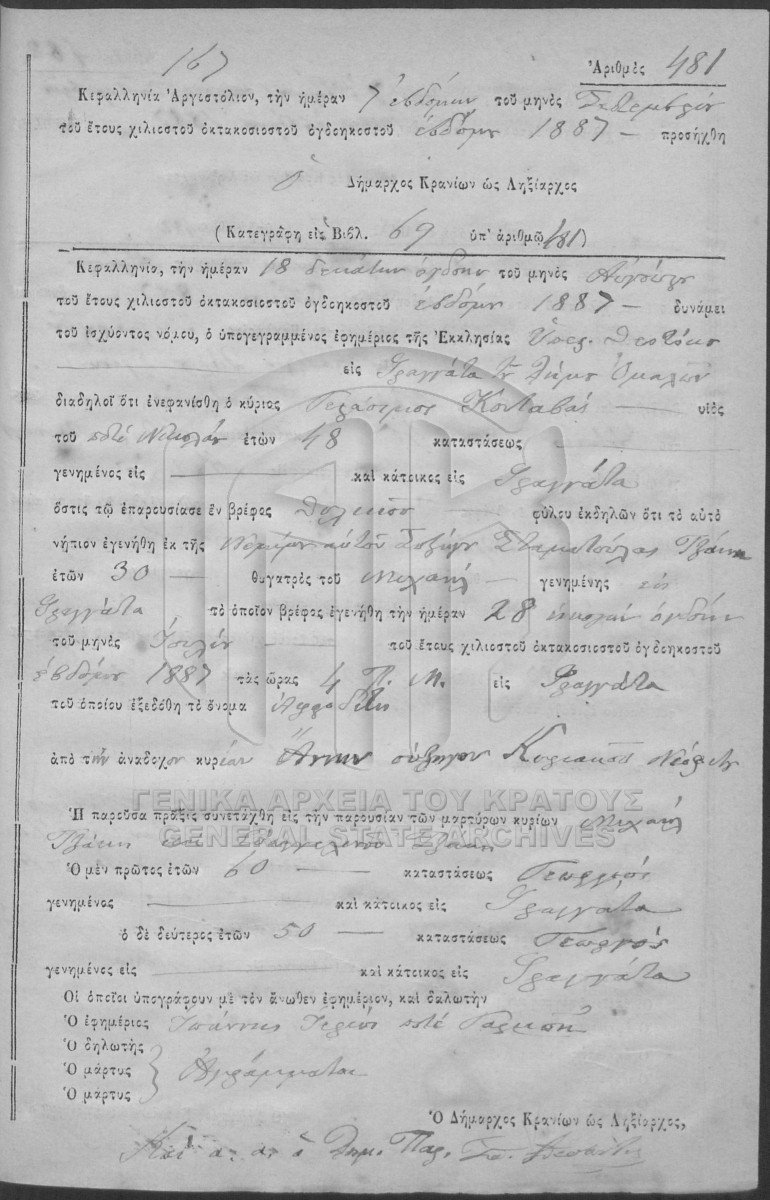 167
Ἀριθμὸς 481
Κεφαλληνία Ἀργοστόλιον, τὴν ἡμέραν 7 ἑβδόμην τοῦ μηνὸς Σεπτεμβρίου
τοῦ ἔτους χιλιοστοῦ ὀκτακοσιοστοῦ ὀγδοηκοστοῦ ἑβδόμου 1887 — προσήχθη
Ὁ Δήμαρχος Κρανίων ὡς Ληξίαρχος
(Κατεγράφη εἰς Βιβλ. 69 ὑπ' ἀριθμῷ 481)
Κεφαλληνία, τὴν ἡμέραν 18 δεκάτην ὀγδόην τοῦ μηνὸς Αὐγούστου
τοῦ ἔτους χιλιοστοῦ ὀκτακοσιοστοῦ ὀγδοηκοστοῦ ἑβδόμου 1887 — δυνάμει
τοῦ ἰσχύοντος νόμου, ὁ ὑπογεγραμμένος ἐφημέριος τῆς Ἐκκλησίας Ὑπερ. Θεοτόκου
εἰς Φραγγάτα τοῦ Δήμου Ὁμαλῶν
διαδηλοῖ ὅτι ἐνεφανίσθη ὁ κύριος Γεράσιμος Κουταβᾶς — υἱὸς
τοῦ ποτέ Νικολάου ἐτῶν 48 καταστάσεως
γενημένος εἰς — καὶ κάτοικος εἰς Φραγγάτα
ὅστις τῷ ἐπαρουσίασε ἓν βρέφος θηλυκοῦ φύλου ἐκδηλῶν ὅτι τὸ αὐτὸ
νήπιον ἐγενήθη ἐκ τῆς νομίμου αὐτοῦ συζύγου Σταματούλας Τζάκη
ἐτῶν 30 — θυγατρὸς τοῦ Μιχαήλ — γενημένης εἰς
Φραγγάτα τὸ ὁποῖον βρέφος ἐγενήθη τὴν ἡμέραν 28 εἰκοστὴν ὀγδόην
τοῦ μηνὸς Ἰουλίου τοῦ ἔτους χιλιοστοῦ ὀκτακοσιοστοῦ ὀγδοηκοστοῦ
ἑβδόμου 1887 τὰς ὥρας 4 Π. Μ. εἰς Φραγγάτα
τοῦ ὁποίου ἐξεδόθη τὸ ὄνομα Ἀφροδίτη
ἀπὸ τὴν ἀνάδοχον κυρίαν Ἄννην σύζυγον Κυριακοῦ
ΓΕΝΙΚΑ ΑΡΧΕΙΑ ΤΟΥ ΚΡΑΤΟΥΣ
Ἡ παροῦσα πρᾶξις συνετάχθη εἰς τὴν παρουσίαν τῶν μαρτύρων κυρίων Μιχαήλ
GENERAL STATE ARCHIVES
Τζάκη καὶ
Ὁ μὲν πρῶτος ἐτῶν 60 — καταστάσεως Γεωργός
γενημένος — καὶ κάτοικος εἰς Φραγγάτα
ὁ δὲ δεύτερος ἐτῶν 50 — καταστάσεως Γεωργός
γενημένος εἰς — καὶ κάτοικος εἰς Φραγγάτα
Οἱ ὁποῖοι ὑπογράφουν μὲ τὸν ἄνωθεν ἐφημέριον, καὶ δηλωτὴν
Ὁ ἐφημέριος Ἰωάννης ποτέ
Ὁ δηλωτὴς
Ὁ μάρτυς Ἀγράμματοι
Ὁ μάρτυς
Ὁ Δήμαρχος Κρανίων ὡς Ληξίαρχος,
Καὶ α. α. ὁ Δημ. Παρ.